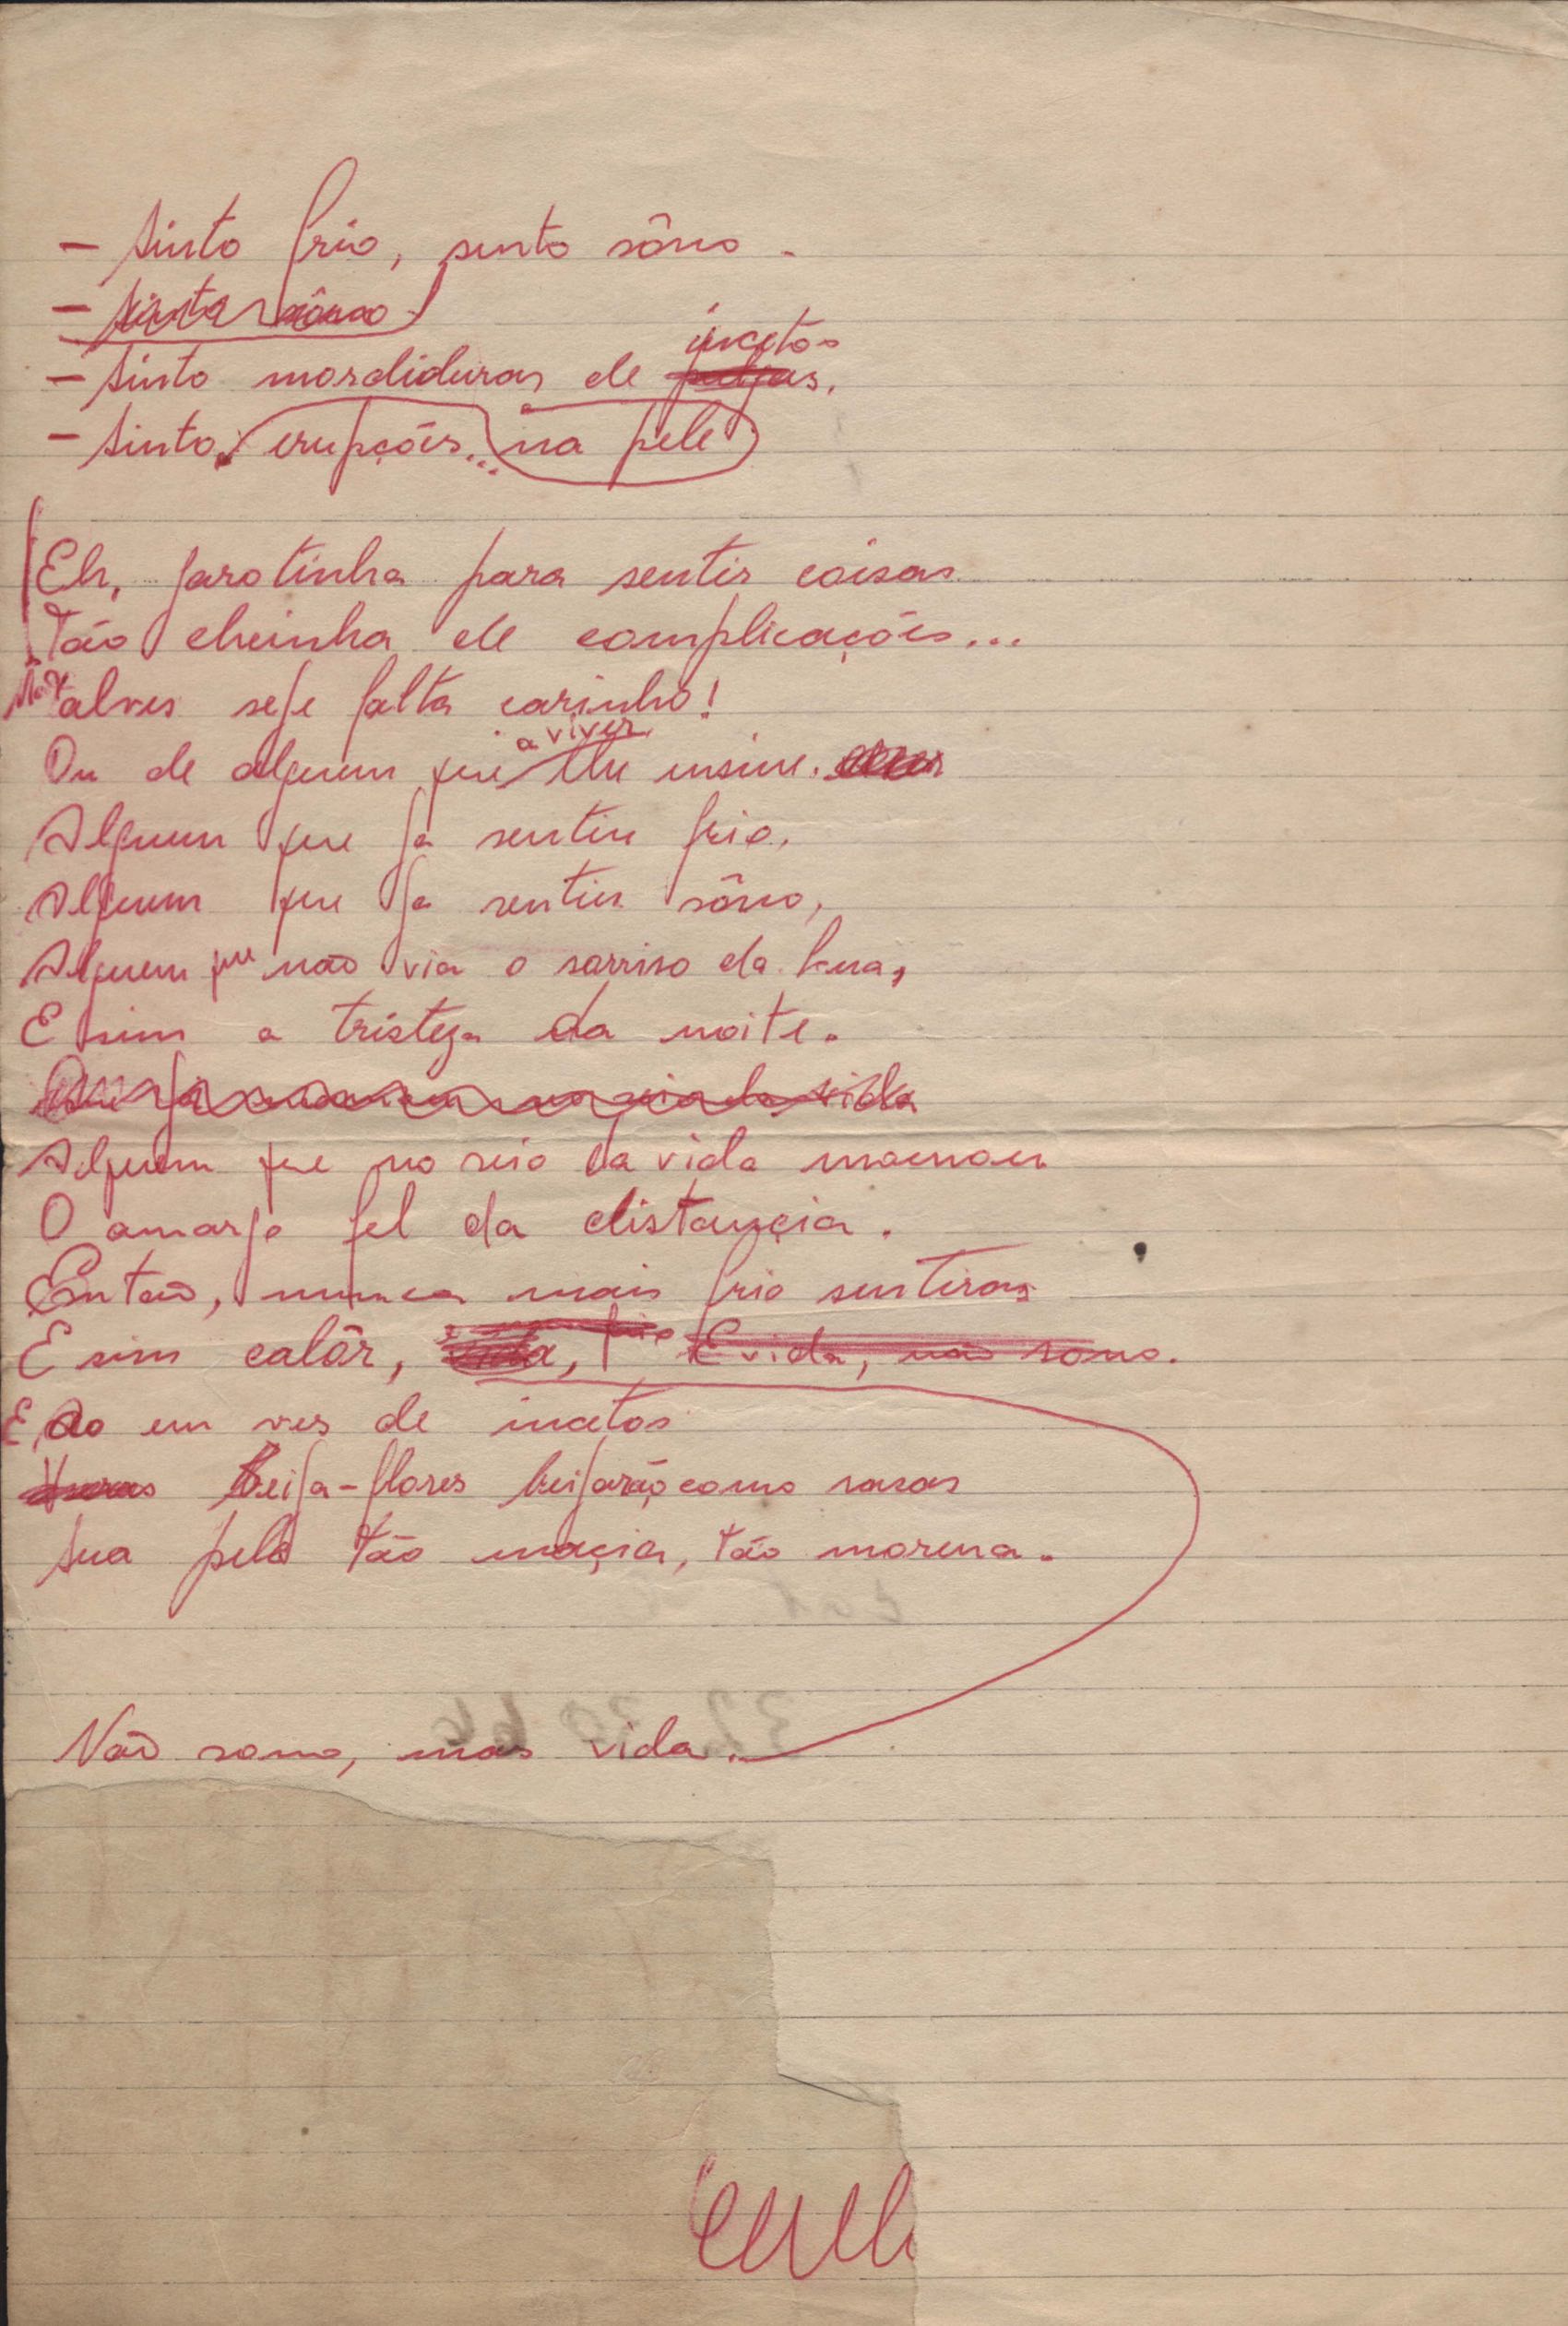 - Sinto frio, sinto sôno.
- Sinto sôno
incetos
- Sinto mordiduras de pulgas.
- Sinto erupções... na pele
Eh, garotinha para sentir coisas
Tão cheinha de complicações...
Mas talves seje falta carinho!
a viver
Ou de alguem que lhe insine.
Alguem que ja sentiu frio,
Alguem que ja sentiu sôno,
Alguem que não via o sorriso da lua,
E sim a tristeza da noite.
vida
Alguem que no seio da vida mamou
O amargo fel da distançia.
Então, nunca mais frio sentiras
E sim calôr, vida, E vida, não sono.
E Ao em ves de incetos
Beija-flores beijarão como rosas
Sua pele tão maçia, tão morena.
Não sono, mas vida.